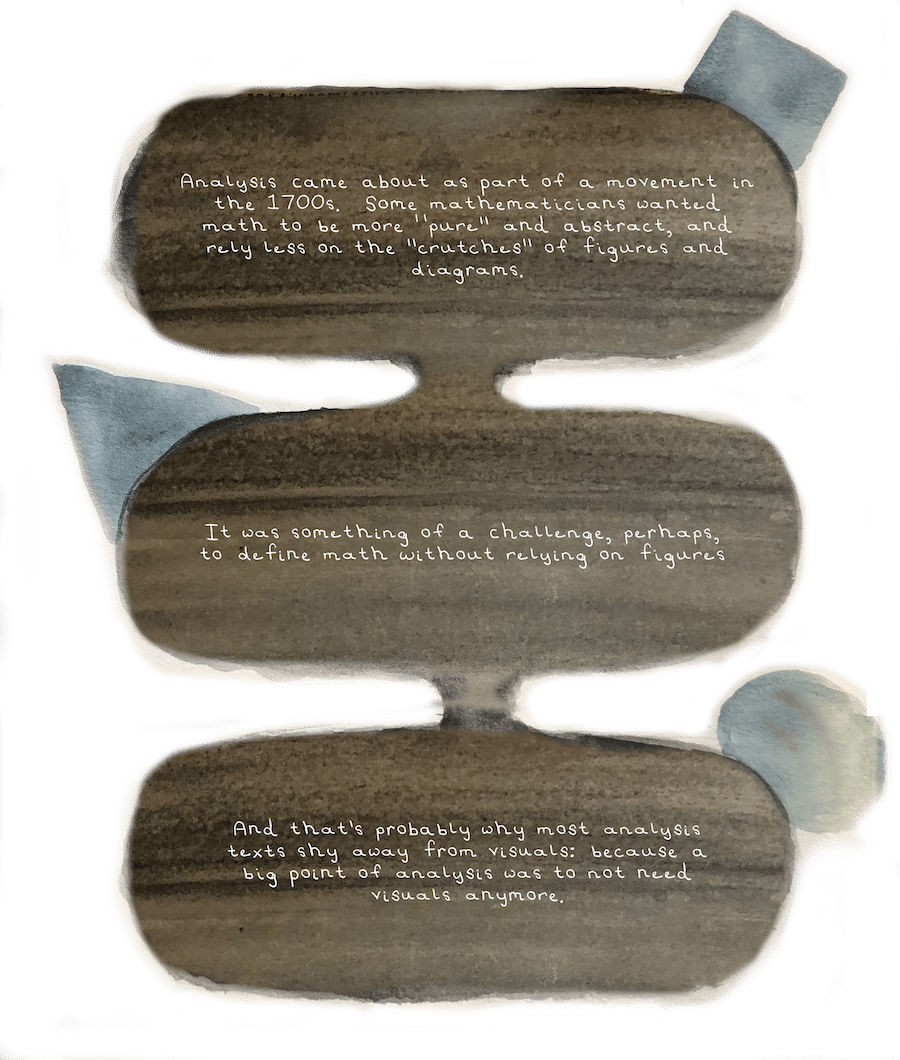 Analysis came about as part of a movement in
the 1700s. Some mathematicians wanted
math to be more "pure" and abstract, and
rely less on the "crutches" of figures and
diagrams.
It was something of a challenge, perhaps,
to define math without relying on figures
And that's probably why most analysis
texts shy away from visuals: because a
big point of analysis was to not need
visuals anymore.